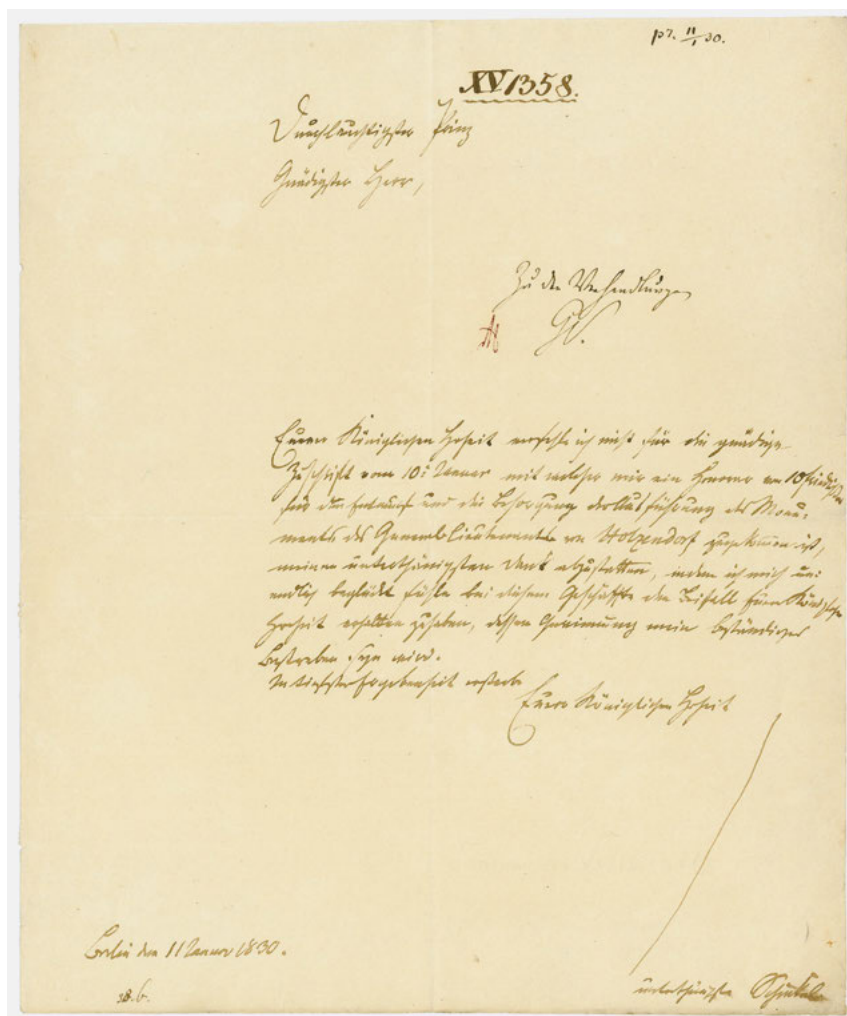 pr. 11/1 30.
XV 1358.
Durchlauchtigster Prinz
Gnädigster Herr,
Zu den Verhandlungen
Eurer Königlichen Hoheit verfehle ich nicht für die gnädige
Zuschrift vom 10t Januar mit welcher mir ein Honorar von 10
für den Entwurf und die Besorgung der Ausführung des Monu-
ments des Generallieutenants von Holzendorf zugekommen ist,
meinen unterthänigsten Dank abzustatten, indem ich mich un-
endlich beglückt fühle bei diesem Geschäfte den Beifall Eurer Königlichen
Hoheit erhalten zu haben, dessen Gewinnung mein beständiges
Bestreben seyn wird.
In tiefster Ergebenheit ersterbe
Eurer Königlichen Hoheit
Berlin den 11 Januar 1830.
unterthänigster Schinkel